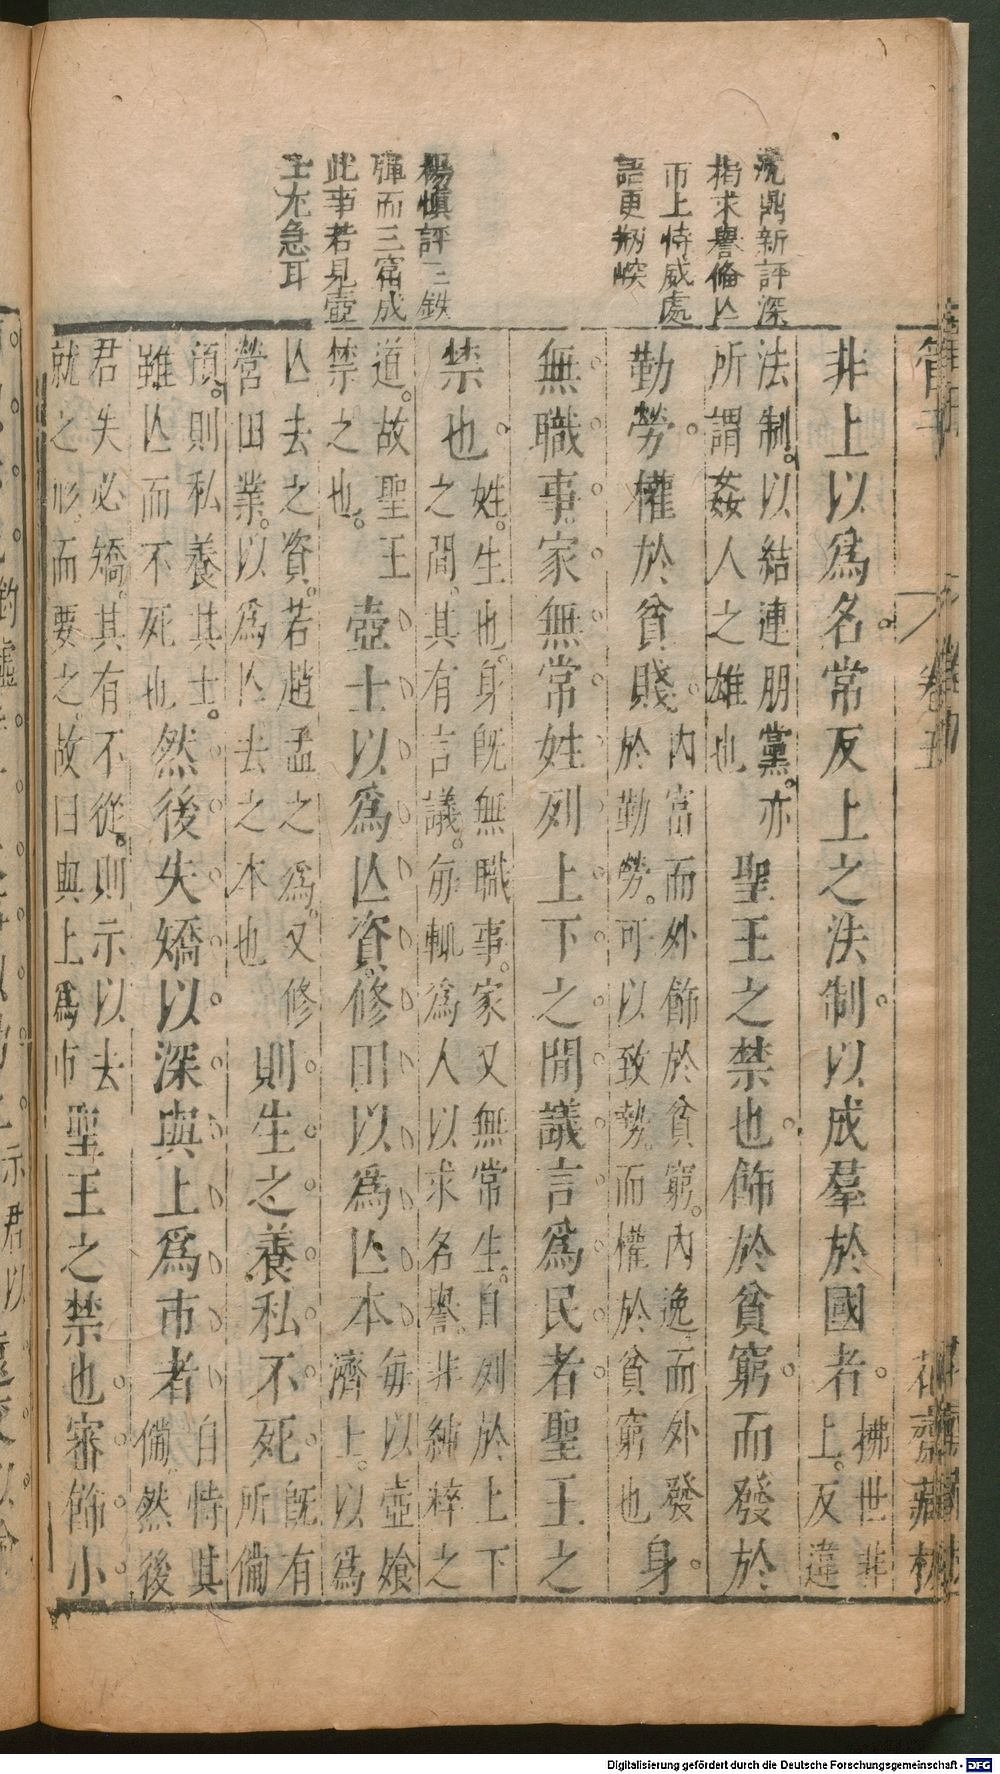 沈鼎新評深
指求譽脩亾
而上恃威處
語更㓨峻
楊慎評三鉄
彈而三窟成
此事若見壺
士尤急耳
管子
卷五
花齋藏板
非上以爲名常反上之法制以成羣於國者拂世非
上反違
法制以結連朋黨亦
所謂姦人之雄也
聖王之禁也飾於貧窮而發於
勤勞權於貧賤
內富而外飾於貧窮內逸而外發
於勤勞可以致勢而權於貧窮也
身
無職事家無常姓列上下之間議言爲民者聖王之
禁也
姓生也身旣無職事家又無常生自列於上下
之間其有言議每輒爲人以求名譽非純粹之
道故聖王
禁之也
壺士以爲亾資修田以爲亾本
每以壺飧
濟士以爲
亾去之資若趙孟之爲又修
營田業以爲亾去之本也
則生之養私不死
旣有
所備
湏則私養其士
雖亾而不死也
然後失矯以深與上爲市者
自恃其
備然後
君失必矯其有不從則示以去
就之形而要之故曰與上爲市
聖王之禁也審飾小
Digitalisierung gefördert durch die Deutsche Forschungsgemeinschaft - DFG